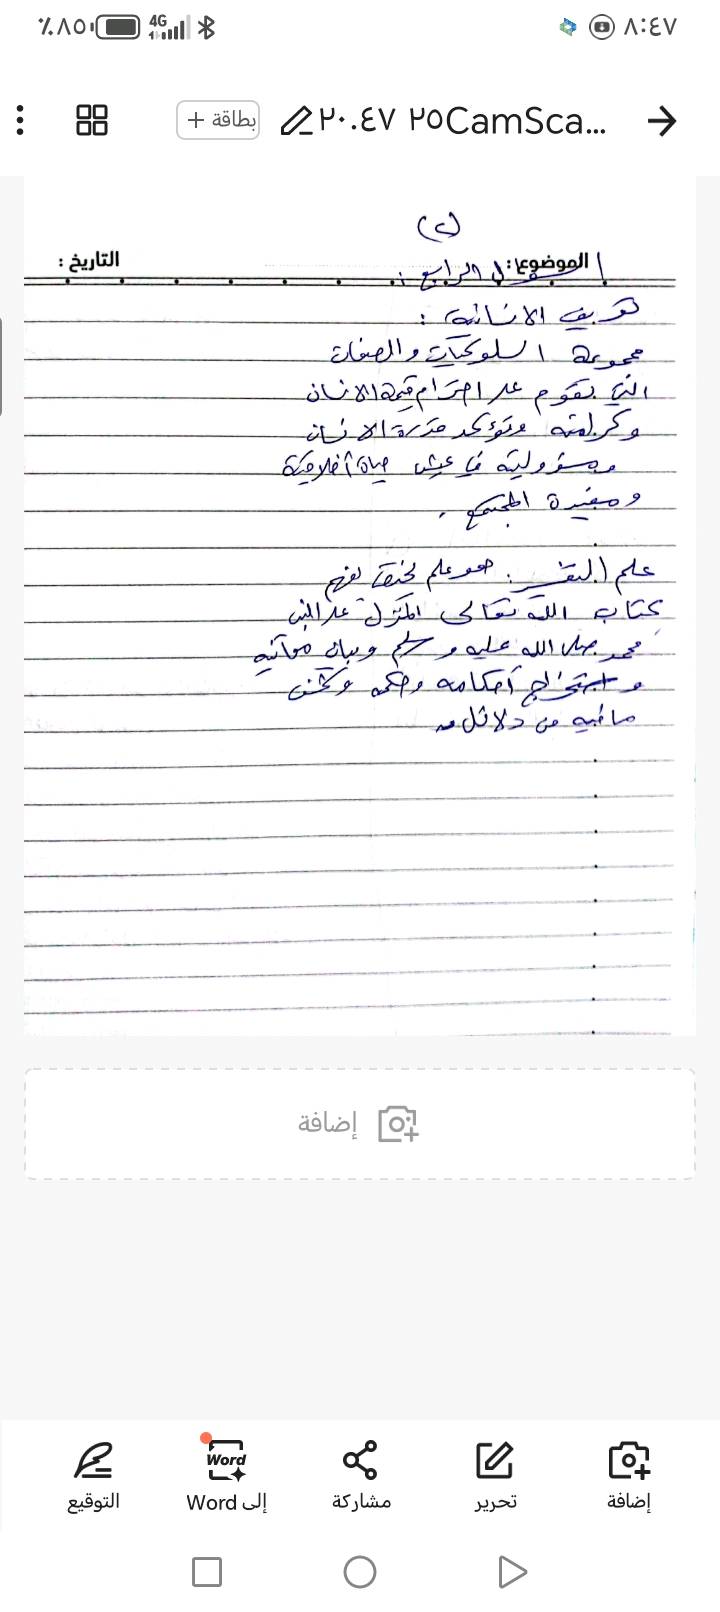 ٨:٤٧
4G
٪٨٥
CamSca... ٢٥ ٢٠.٤٧
بطاقة +
(٢)
الموضوع:
التاريخ :
السؤال الرابع :
تعريف الانسانية :
مجموعة السلوكيات والصفات
التي تقوم على احترام قيمة الانسان
وكرامته وتؤكد قدرة الانسان
ومسؤوليته في عيش حياة أخلاقية
ومفيدة المجتمع .
علم التفسير : هو علم يختص بفهم
كتاب الله تعالى المنزل على النبي
محمد صلى الله عليه وسلم وبيان معانيه
واستخراج أحكامه وحكمه
ما فيه من دلائل
إضافة
إضافة
تحرير
مشاركة
Word
إلى Word
التوقيع